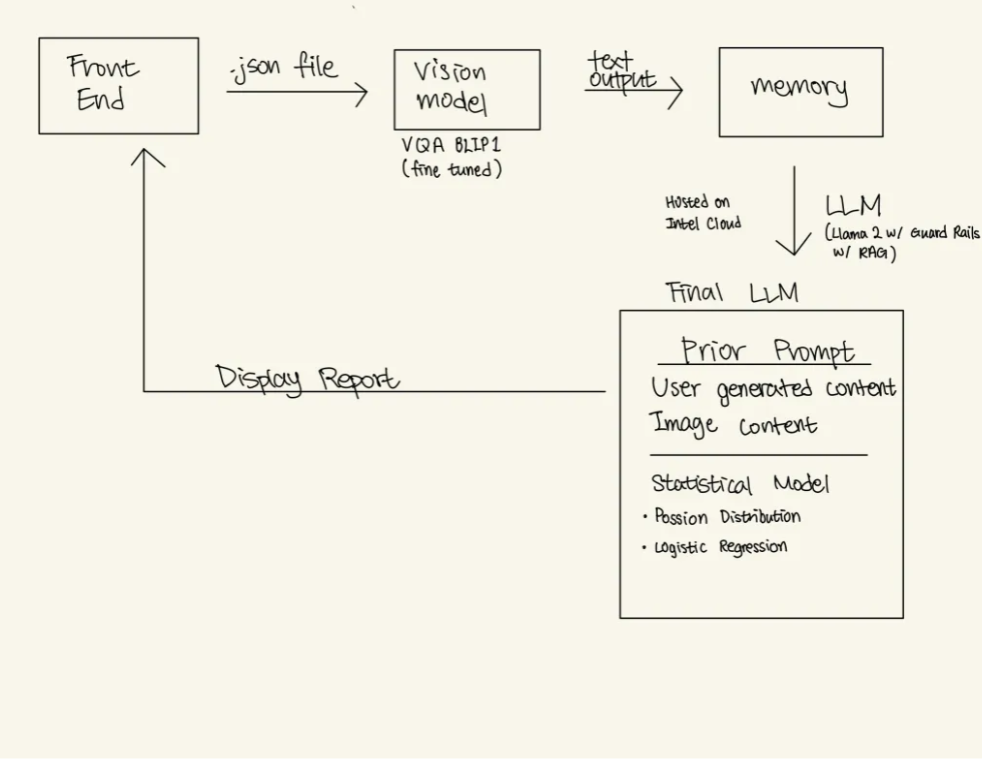 Front
End
.json file
Vision
model
VQA BLIP1
(fine tuned)
text
output
memory
Hosted on
Intel Cloud
LLM
(Llama 2 w/ Guard Rails
w/ RAG)
Final LLM
Prior Prompt
User generated content
Image content
Statistical Model
• Possion Distribution
• Logistic Regression
Display Report